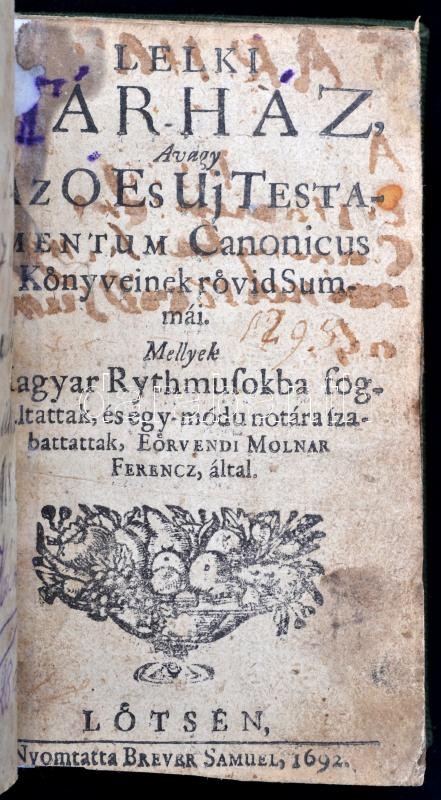 LELKI
TÁR-HÁZ,
Avagy
AZ O Es Uj TESTA-
MENTUM Canonicus
Kőnyveinek rővid Sum-
mái.
Mellyek
Magyar Rythmuſokba fog-
laltattak, és egy-módu notára ſza-
battattak, EŐRVENDI MOLNAR
FERENCZ, által.
LŐTSÉN,
Nyomtatta BREVER SAMUEL, 1692.